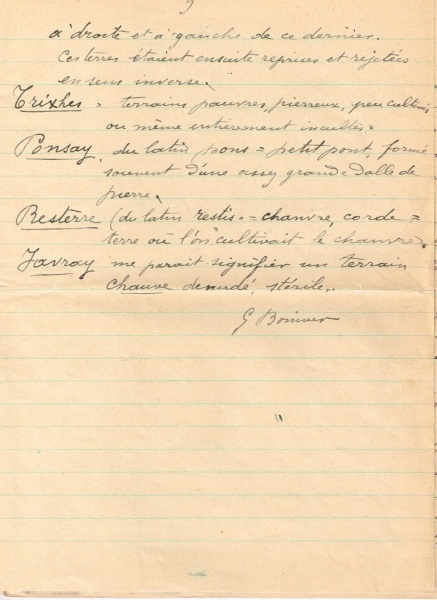 à droite et à gauche de ce dernier.
Ces terres étaient ensuite reprises et rejetées
en sens inverse.
Trixhes = terrains pauvres, pierreux, peu cultivés
ou même entièrement incultes.
Ponsay, du latin pons = petit pont, formé
souvent d'une assez grande dalle de
pierre.
Resterre (du latin restis = chanvre, corde =
terre où l'on cultivait le chanvre).
Javray me paraît signifier un terrain
chauve dénudé stérile.
G